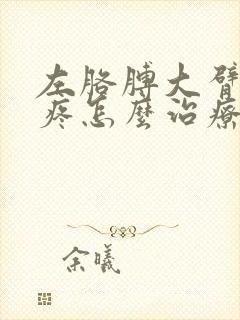 左胳膊大臂
疼怎麼治療
余曦